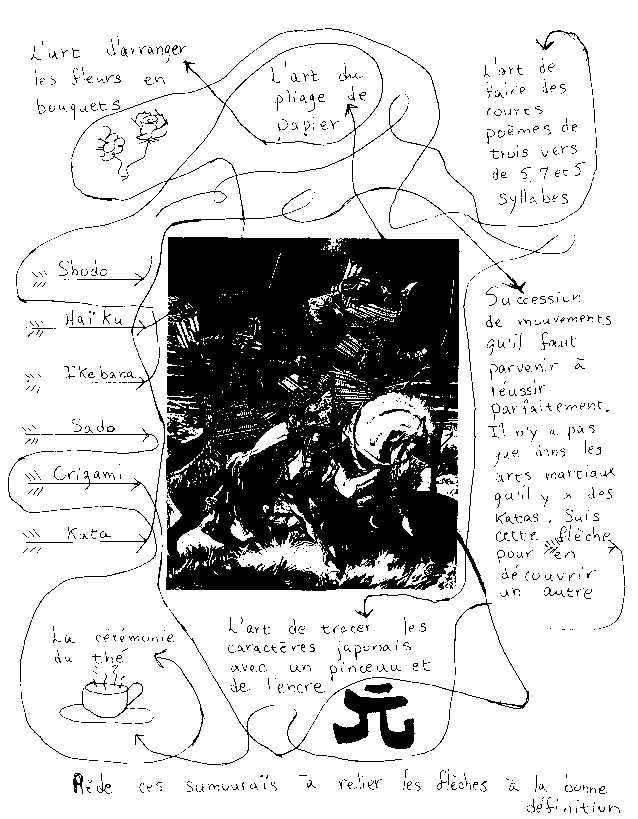 L'art d'arranger
les fleurs en
bouquets
L'art du
pliage de
papier
L'art de
faire des
courts
poèmes de
trois vers
de 5 7 et 5
syllabes
Shodo
Haïku
Ikebana
Sado
Origami
Kata
Succession
de mouvements
qu'il faut
parvenir à
réussir
parfaitement.
Il n'y a pas
que dans les
arts martiaux
qu'il y a des
Katas. Suis
cette flèche
pour en
découvrir
un autre
La cérémonie
du thé
L'art de tracer les
caractères japonais
avec un pinceau et
de l'encre
元
Aide ces samouraïs à relier les flèches à la bonne
définition